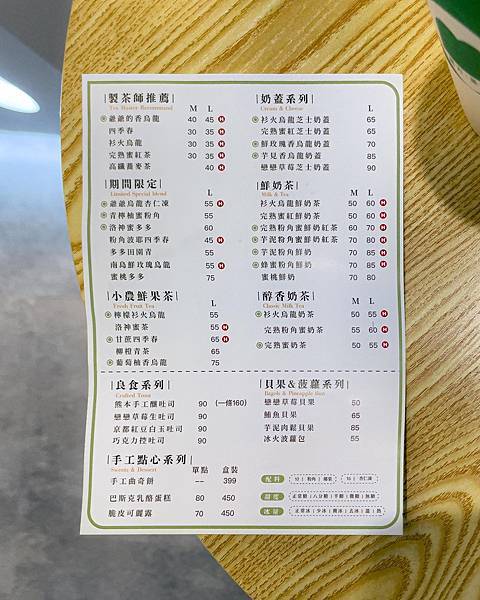 製茶師推薦
Tea Master Recommend M L
爺爺的香烏龍 40 45 H
四季春 30 35 H
衫火烏龍 30 35 H
完熟蜜紅茶 30 35 H
高纖蕎麥茶 40 H
期間限定
Limited Special blend L
爺爺烏龍杏仁凍 55 H
青檸柚蜜粉角 55
洛神蜜多多 60
粉角波耶四季春 45 H
多多田園青 55
南島鮮玫瑰烏龍 55 H
蜜桃多多 75
小農鮮果茶
Fresh Fruit Tea L
檸檬衫火烏龍 55
洛神蜜茶 55 H
甘蔗四季春 65 H
柳橙青茶 65
葡萄柚香烏龍 75
奶蓋系列
Cream & Cheese L
衫火烏龍芝士奶蓋 65
完熟蜜紅芝士奶蓋 65
鮮玫瑰香烏龍奶蓋 70
芋見香烏龍奶蓋 85
戀戀草莓芝士奶蓋 90
鮮奶茶
Milk & Tea M L
衫火烏龍鮮奶茶 50 60 H
完熟蜜紅鮮奶茶 50 60 H
完熟粉角蜜鮮奶紅茶 60 70 H
芋泥粉角蜜鮮奶紅茶 70 80 H
芋泥粉角鮮奶 70 85 H
蜂蜜粉角鮮奶 70 85 H
蜜桃鮮奶 70 80
醇香奶茶
Classic Milk Tea M L
衫火烏龍奶茶 50 55 H
完熟粉角蜜奶茶 55 60 H
完熟蜜奶茶 50 55 H
良食系列
Crafted Toast
熊本手工釀吐司 90 (一條160)
戀戀草莓生吐司 90
京都紅豆白玉吐司 90
巧克力控吐司 90
貝果&菠蘿系列
Bagels & Pineapple Bun
戀戀草莓貝果 50
鮪魚貝果 65
芋泥肉鬆貝果 85
冰火菠蘿包 55
手工點心系列
Sweets & Dessert 單點 盒裝
手工曲奇餅 -- 399
巴斯克乳酪蛋糕 80 450
脆皮可麗露 70 450
配料 10 | 粉角 | 椰果 15 | 杏仁凍
甜度 正常糖 | 八分糖 | 半糖 | 微糖 | 無糖
冰量 正常冰 | 少冰 | 微冰 | 去冰 | 溫 | 熱